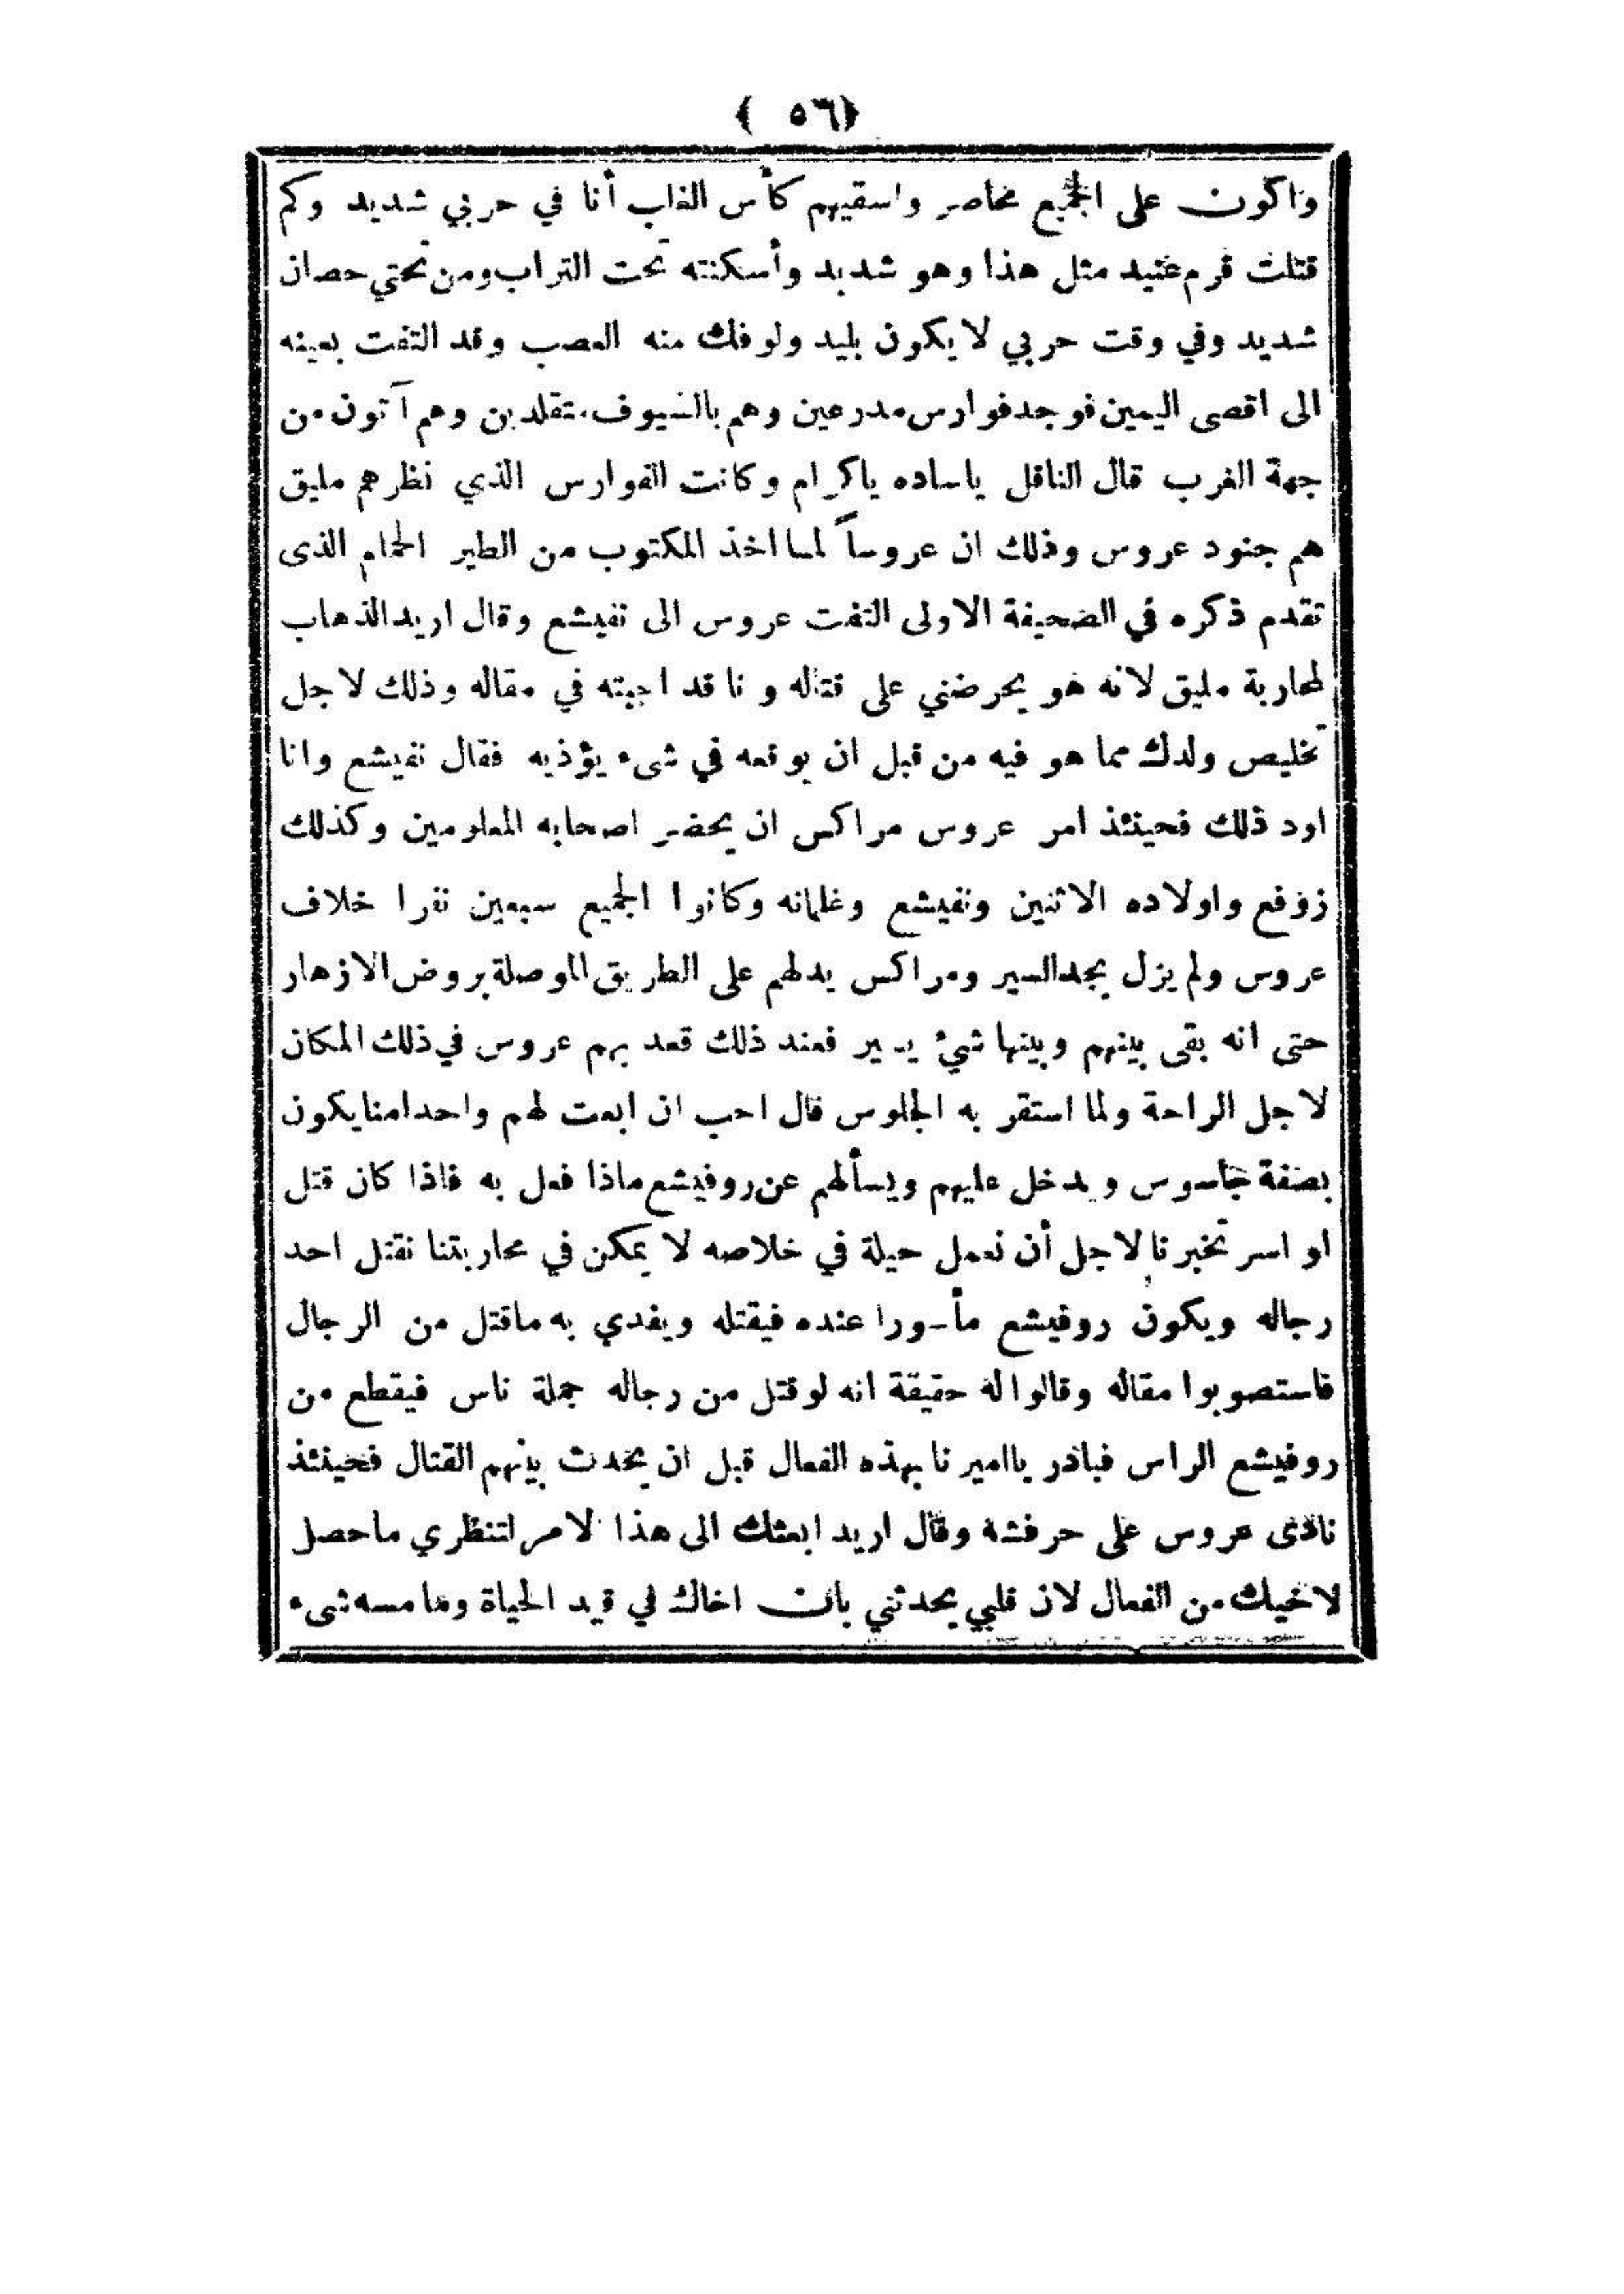 ﴿٥٦﴾
واكون على الجميع محاصر واسقيهم كأس العذاب أنا في حربي شديد وكم
قتلت قرم عنيد مثل هذا وهو شديد وأسكنته تحت التراب ومن تحتي حصان
شديد وفي وقت حربي لا يكون بليد ولو فك منه العصب وقد التفت بعينه
الى اقصى اليمين فوجد فوارس مدرعين وهم بالسيوف متقلدين وهم آتون من
جهة الغرب قال الناقل ياساده ياكرام وكانت الفوارس الذي نظرهم مليق
هم جنود عروس وذلك ان عروساً لما اخذ المكتوب من الطير الحمام الذى
تقدم ذكره في الصحيفة الاولى التفت عروس الى نفيشع وقال اريد الذهاب
لمحاربة مليق لانه هو يحرضني على قتاله و نا قد اجبته في مقاله وذلك لاجل
تخليص ولدك مما هو فيه من قبل ان يوقعه في شىء يؤذيه فقال نفيشع وانا
اود ذلك فحينئذ امر عروس مراكس ان يحضر اصحابه المعلومين وكذلك
زوفع واولاده الاثنين ونفيشع وغلمانه وكانوا الجميع سبعين نفرا خلاف
عروس ولم يزل يجد السير ومراكس يدلهم على الطريق الموصلة بروض الازهار
حتى انه بقى بينهم وبينها شئ يسير فعند ذلك قعد بهم عروس في ذلك المكان
لاجل الراحة ولما استقر به الجلوس قال احب ان ابعت لهم واحدا منا يكون
بصفة جاسوس ويدخل عليهم ويسألهم عن روفيشع ماذا فعل به فاذا كان قتل
او اسر تخبرنا لاجل أن نعمل حيلة في خلاصه لا يمكن في محاربتنا نقتل احد
رجاله ويكون روفيشع مأسورا عنده فيقتله ويفدي به ماقتل من الرجال
فاستصوبوا مقاله وقالوا له حقيقة انه لو قتل من رجاله جملة ناس فيقطع من
روفيشع الراس فبادر ياامير نا بهذه الفعال قبل ان يحدث بينهم القتال فحينئذ
نادى عروس على حرفشة وقال اريد ابعثك الى هذا لامر لتنظري ماحصل
لاخيك من الفعال لان قلبي يحدثني بان اخاك في قيد الحياة وما مسه شىء